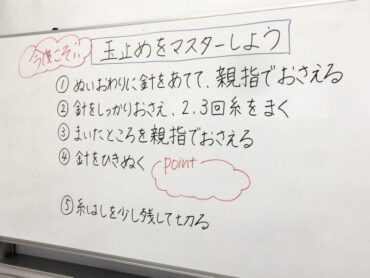 今度こそ!! 玉止めをマスターしよう
① ぬいおわりに針をあてて、親指でおさえる
② 針をしっかりおさえ、2、3回糸をまく
③ まいたところを親指でおさえる
④ 針をひきぬく
point
⑤ 糸はしを少し残して切る